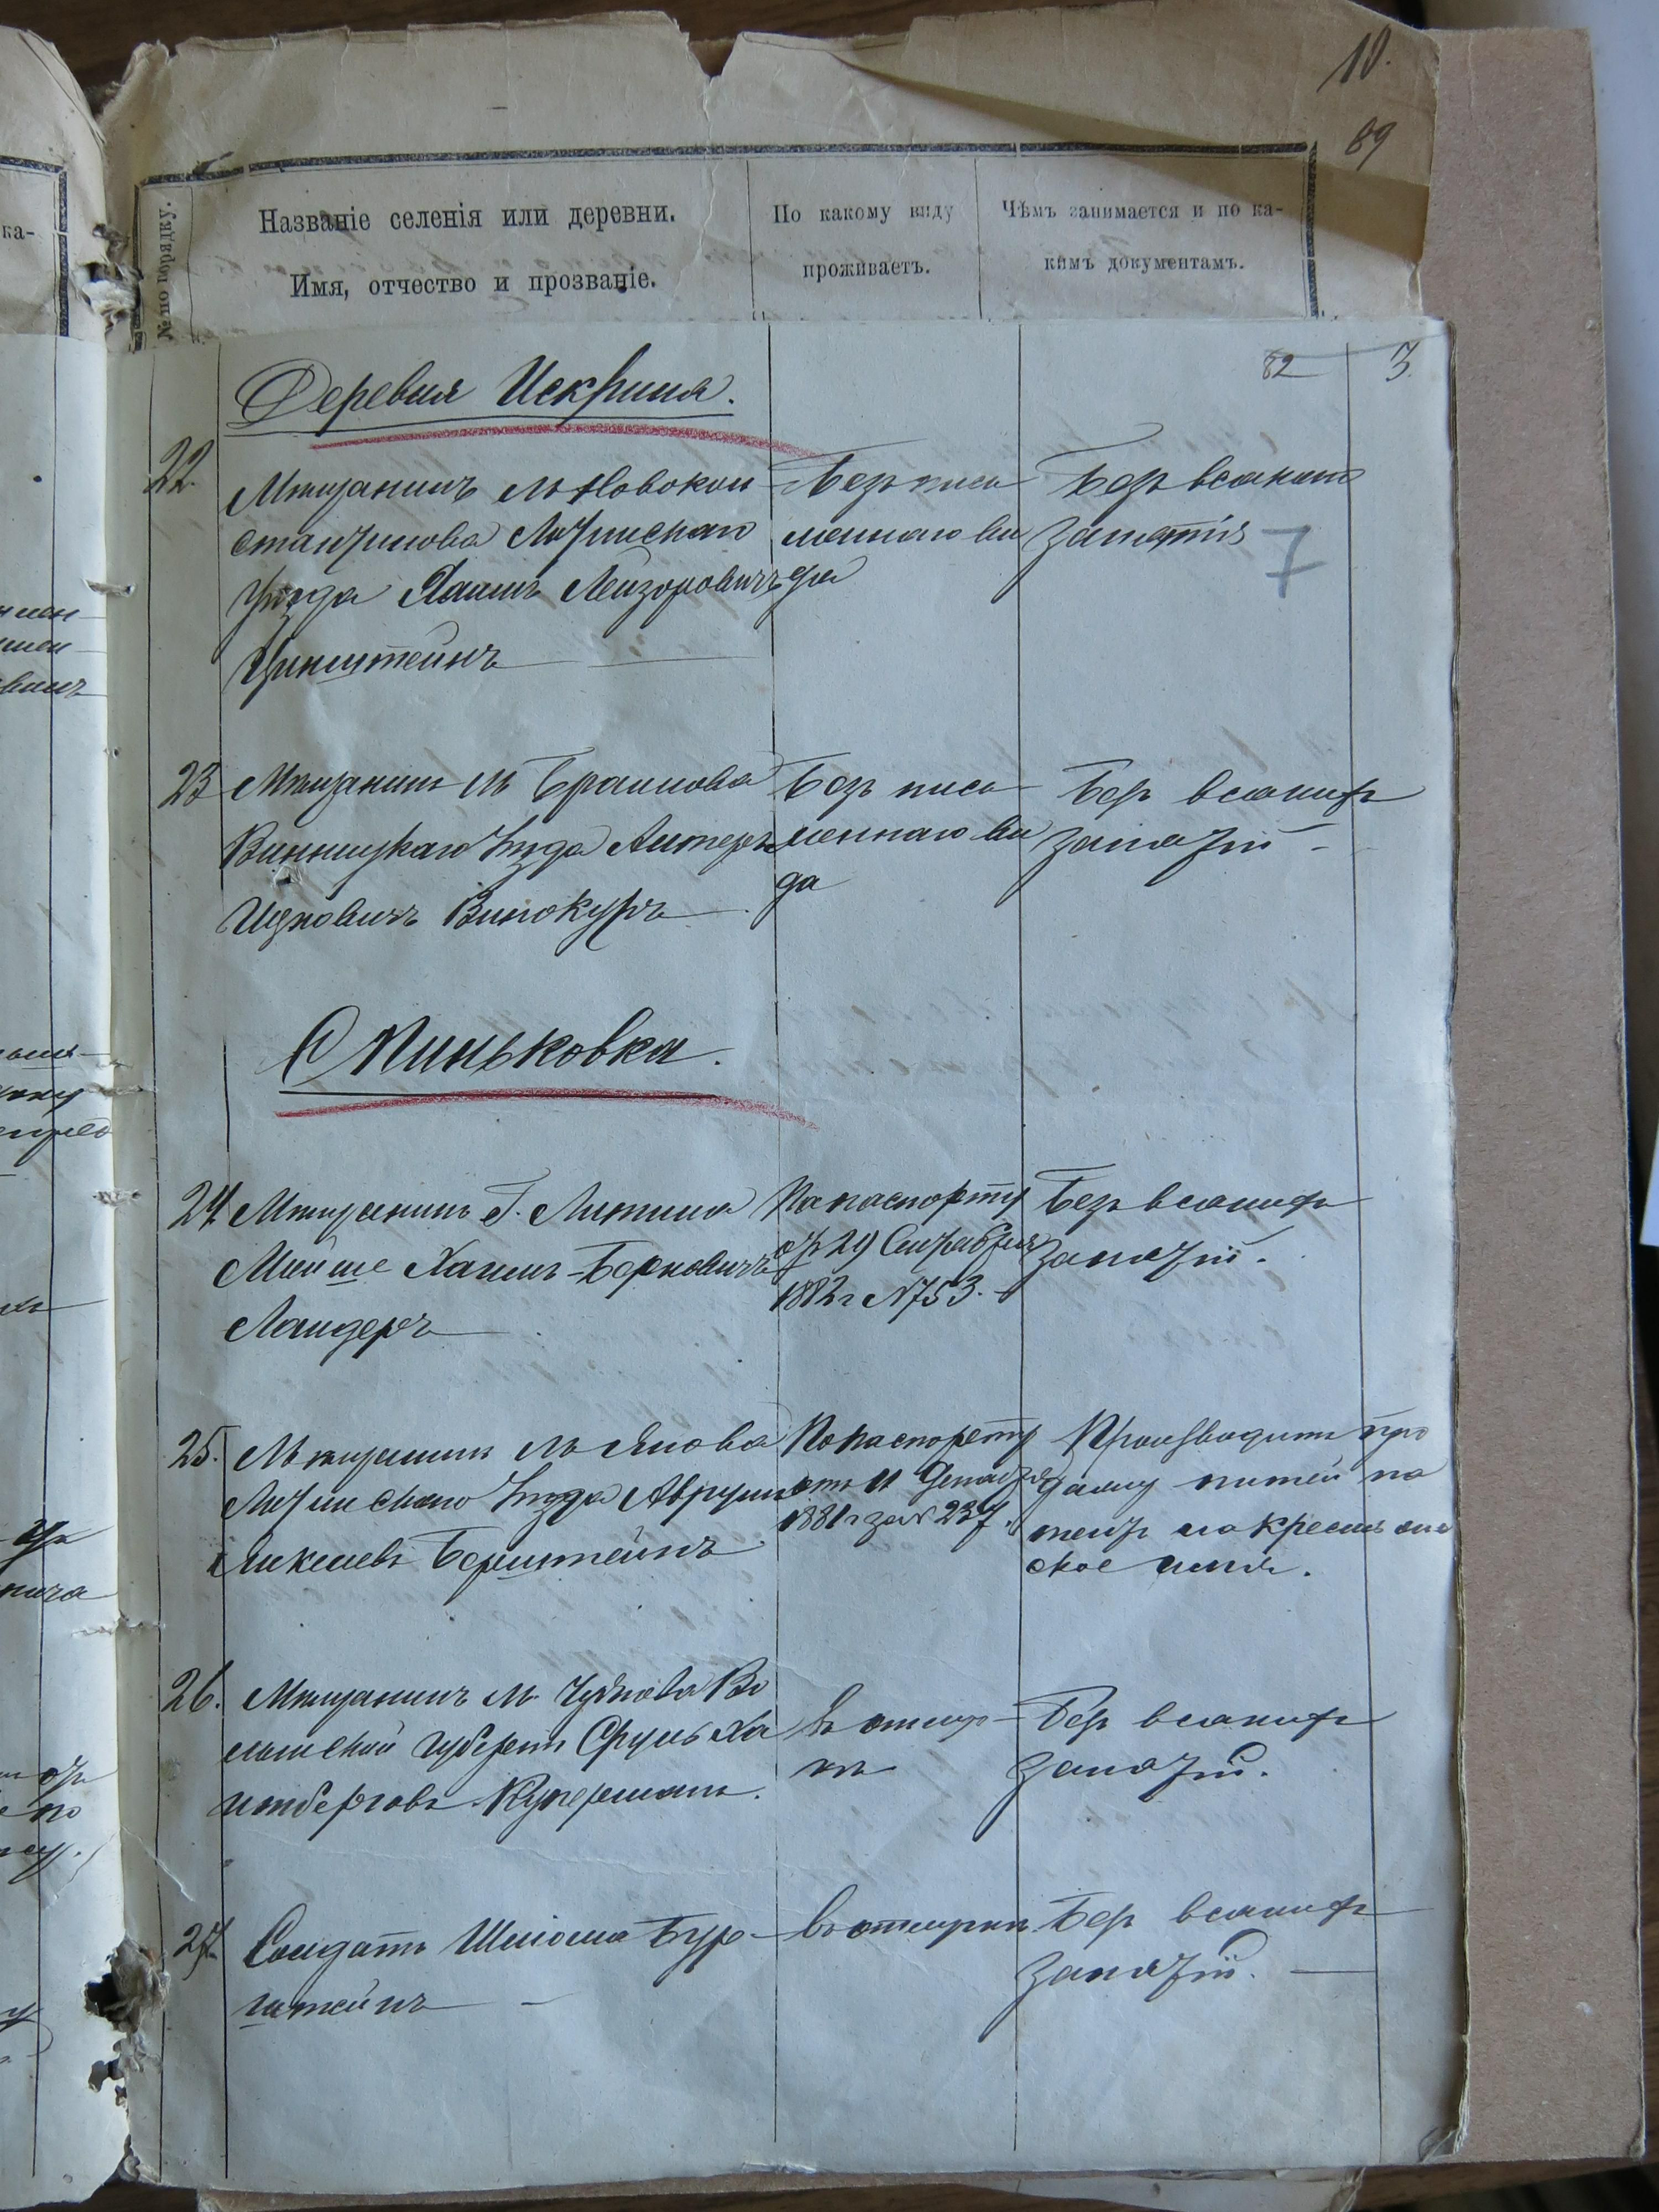 10.
89
№ по порядку.
Названіе селенія или деревни.
Имя, отчество и прозваніе.
По какому виду
проживаетъ.
Чѣмъ занимается и по ка-
кимъ документамъ.
ка-
82
3.
Деревня Искрыня.
22.
Мѣщанинъ м Новокон
стантинова Литинскаго
уѣзда Хаимъ Лейзоровичъ
Цинштейнъ
Безъ пись
меннаго ви
да
Безъ всякаго
занятія
7
23
Мѣщанинъ м Браилова
Винницкаго уѣзда Лейзеръ
Ицковичъ Винокуръ
Безъ пись
меннаго ви
да
Безъ всякихъ
занятій
С Пиньковка.
24.
Мѣщанинъ Г. Литина
Мойше Хаимъ-Берковичъ
Ландеръ
По паспорту
отъ 29 Сентября
1882 г №753.
Безъ всякихъ
занятій.
25.
Мѣщанинъ м Янова
Литинскаго уѣзда Аврумъ
Берштейнъ
По паспорту
отъ 11 Декабря
1881 г за № 237.
Производитъ про
дажу питей по
на крестьян
ское имя.
26.
Мѣщанинъ м. Чуднова Во
лынской губерніи Сруль Ха
имберговъ Куперманъ.
въ отлуч
кѣ
Безъ всякихъ
занятій.
27.
Солдатъ Шліома Бур-
штейнъ
въ отлучкѣ
Безъ всякихъ
занятій.